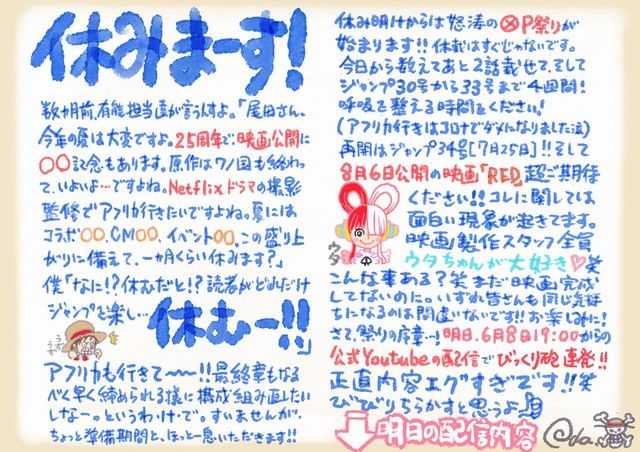 休みまーす!
数カ月前、有能担当達が言うんすよ。「尾田さん、
今年の夏は大変ですよ。25周年で、映画公開に
〇〇記念もあります。原作はワノ国も終わっ
て、いよいよ…ですよね。Netflixドラマの撮影
監修でアフリカ行きたいですよね。夏には
コラボ〇〇、CM〇〇、イベント〇〇。この盛り上
がりに備えて、一カ月くらい休みます?」
僕「なに!?休むだと!?読者がどれだけ
ジャンプを楽し…
休むー!!」
うずうず
アフリカも行きて〜〜!!最終章もなる
べく早く締められる様に構成組み直したい
しなー。というわ・け・で。すいませんが、
ちょっと準備期間と、ほっと一息いただきます!!
休み明けからは怒涛のⓍP祭りが
始まります!!休むはすぐじゃないです。
今日から数えてあと2話載せて、そして
ジャンプ30号から33号まで4週間!
呼吸を整える時間をください!
(アフリカ行きはコロナでダメになりました泣)
再開はジャンプ34号[7月25日]!!そして
8月6日公開の映画「RED」超ご期待
ください!!コレに関しては
面白い現象が起きてます。
映画製作スタッフ全員
ウタちゃんが大好き♡笑
ウタ
こんな事ある?笑まだ映画完成
してないのに。いずれ皆さんも同じ気持
ちになるのは間違いないです!!お楽しみに!
さて、祭りの序章…!明日、6月8日19:00からの
公式Youtubeの配信でびっくり砲連発!!
正直内容エグすぎです!!笑
びびりちらかすと思うよ
明日の配信内容
Oda.